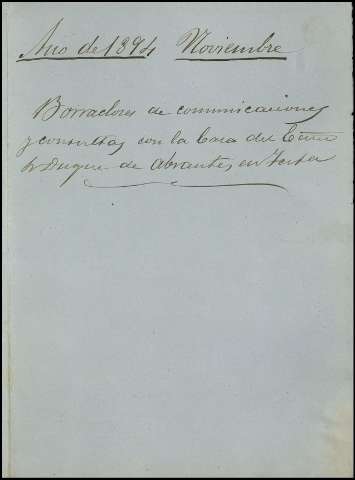 Año de 1894 Noviembre
Borradores de comunicaciones
y consultas con la Casa del Exmo
Sr Duque de Abrantes, en Jerez